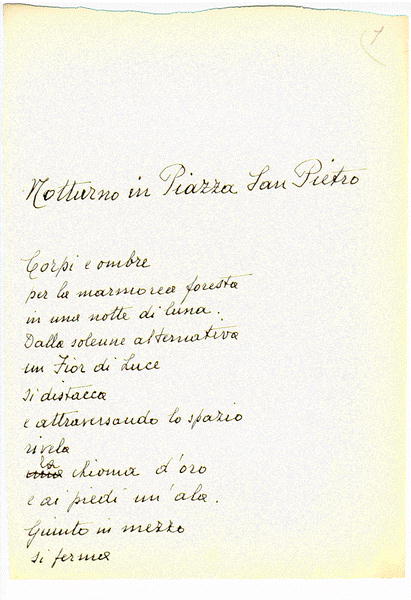 1
Notturno in Piazza San Pietro
Corpi e ombre
per la marmorea foresta
in una notte di luna.
Dalla solenne alternativa
un Fior di Luce
si distacca
e attraversando lo spazio
rivela
la
chioma d'oro
e ai piedi un'ala.
Giunto in mezzo
si ferma